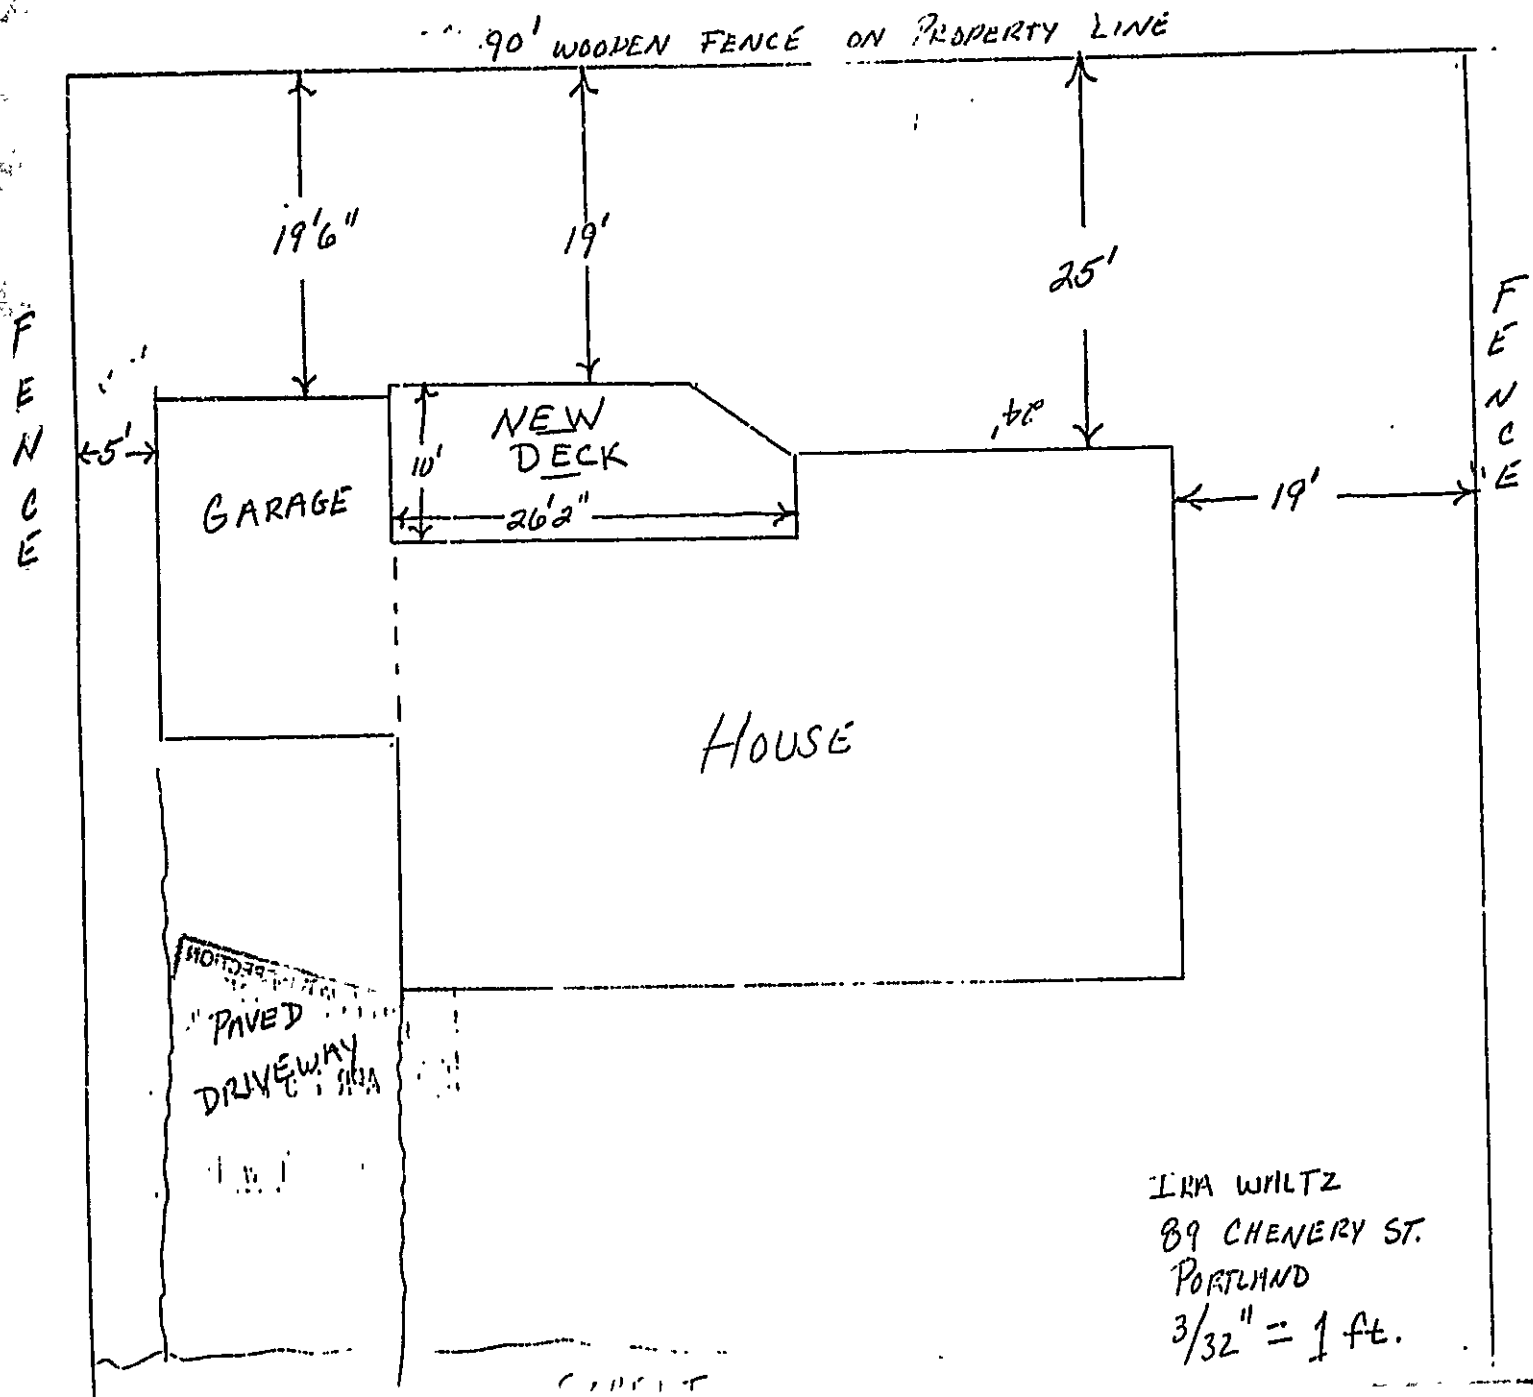 90' WOODEN FENCE ON PROPERTY LINE
19'6"
19'
25'
FENCE
FENCE
5'
GARAGE
10'
NEW
DECK
26'2"
24'
19'
HOUSE
PAVED
DRIVEWAY
IRA WALTZ
89 CHENERY ST.
PORTLAND
3/32" = 1 ft.